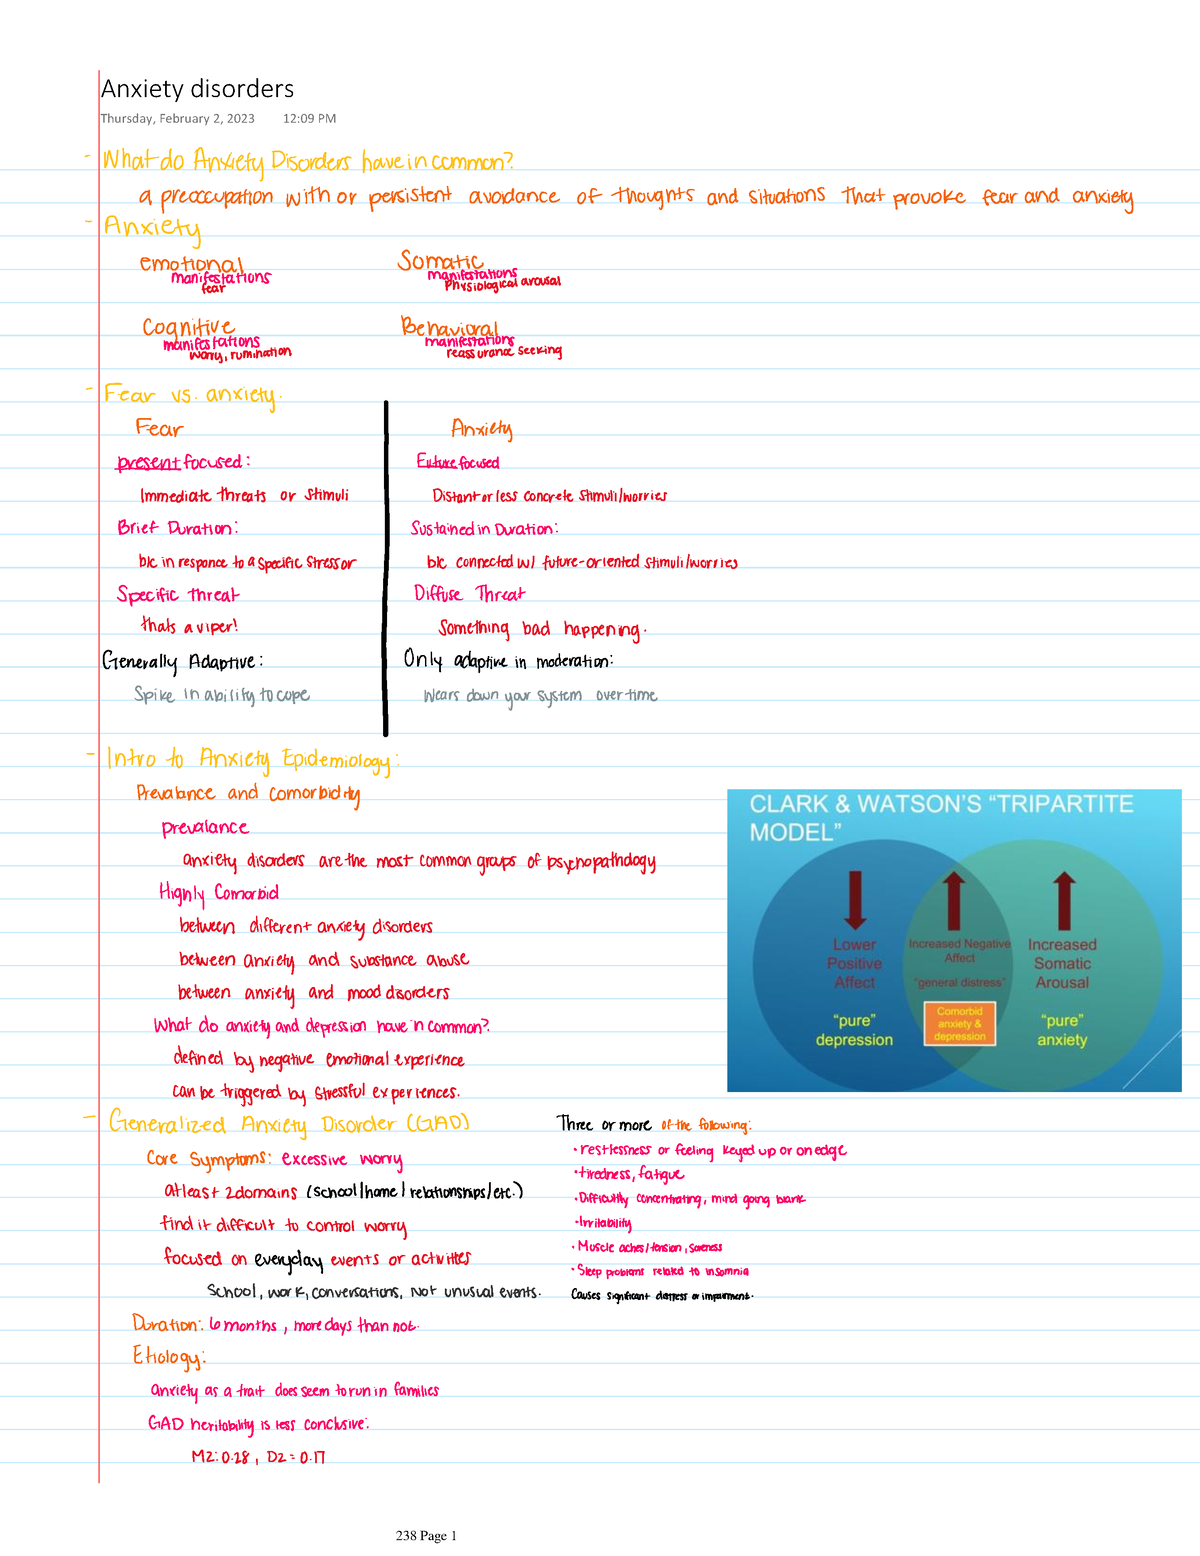 Anxiety disorders
Thursday, February 2, 2023 12:09 PM
- What do Anxiety Disorders have in common?
a preoccupation with or persistent avoidance of thoughts and situations that provoke fear and anxiety
- Anxiety
emotional
manifestations
fear
Somatic
manifestations
Physiological arousal
Cognitive
manifestations
worry, rumination
Behavioral
manifestations
reassurance seeking
- Fear vs. anxiety.
Fear
present focused:
Immediate threats or stimuli
Brief Duration:
b/c in responce to a specific stressor
Specific threat
thats a viper!
Generally Adaptive:
Spike in ability to cope
Anxiety
Future focused
Distant or less concrete stimuli/worries
Sustained in Duration:
b/c connected w/ future-oriented stimuli/worries
Diffuse Threat
Something bad happening.
Only adaptive in moderation:
Wears down your system over time
- Intro to Anxiety Epidemiology:
Prevalance and comorbidity
prevalance
anxiety disorders are the most common groups of psychopathology
Highly Comorbid
between different anxiety disorders
between anxiety and substance abuse
between anxiety and mood disorders
What do anxiety and depression have in common?
defined by negative emotional experience
can be triggered by stressful experiences.
CLARK & WATSON'S "TRIPARTITE
MODEL"
Lower
Positive
Affect
"pure"
depression
Increased Negative
Affect
"general distress"
Comorbid
anxiety &
depression
Increased
Somatic
Arousal
"pure"
anxiety
- Generalized Anxiety Disorder (GAD)
Core Symptoms: excessive worry
atleast 2 domains (school/home/relationships/etc.)
find it difficult to control worry
focused on everyday events or activities
School, work, conversations, Not unusual events.
Duration: 6 months, more days than not.
Etiology:
anxiety as a trait does seem to run in families
GAD heritability is less conclusive:
MZ: 0.28, DZ = 0.17
Three or more of the following:
• restlessness or feeling keyed up or on edge
• tiredness, fatigue
• Difficultly concentrating, mind going blank
• Irritability
• Muscle aches/tension, soreness
• Sleep problems related to insomnia
Causes significant distress or impairment.
238 Page 1